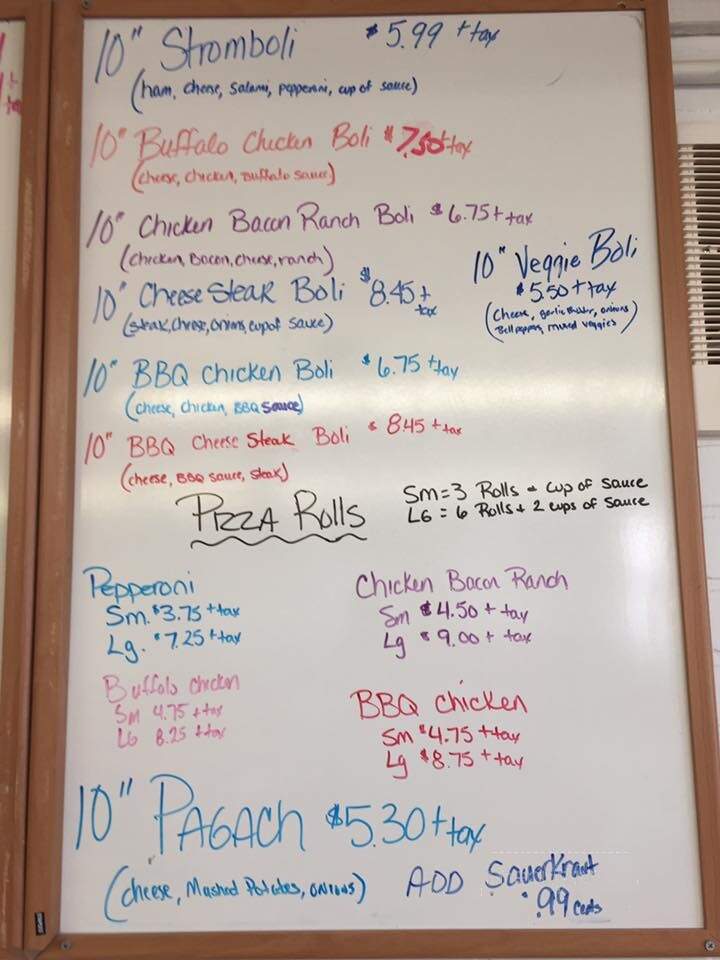 10" Stromboli $5.99 + tax
(ham, cheese, Salami, pepperoni, cup of sauce)
10" Buffalo Chicken Boli $7.50 + tax
(cheese, chicken, Buffalo sauce)
10" Chicken Bacon Ranch Boli $6.75 + tax
(chicken, Bacon, cheese, ranch)
10" Cheese Steak Boli $8.45 + tax
(steak, cheese, onions, cup of sauce)
10" Veggie Boli
$5.50 + tax
(Cheese, garlic Butter, onions
Bell peppers, mixed veggies)
10" BBQ Chicken Boli $6.75 + tax
(cheese, chicken, BBQ Sauce)
10" BBQ Cheese Steak Boli $8.45 + tax
(cheese, BBQ sauce, steak)
Pizza Rolls
Sm = 3 Rolls + cup of sauce
LG = 6 Rolls + 2 cups of sauce
Pepperoni
Sm. $3.75 + tax
Lg. $7.25 + tax
Chicken Bacon Ranch
Sm $4.50 + tax
Lg $9.00 + tax
Buffalo chicken
Sm 4.75 + tax
LG 8.25 + tax
BBQ chicken
Sm $4.75 + tax
Lg $8.75 + tax
10" Pagach $5.30 + tax
(cheese, Mashed Potatoes, onions)
ADD Sauerkraut
.99 cents